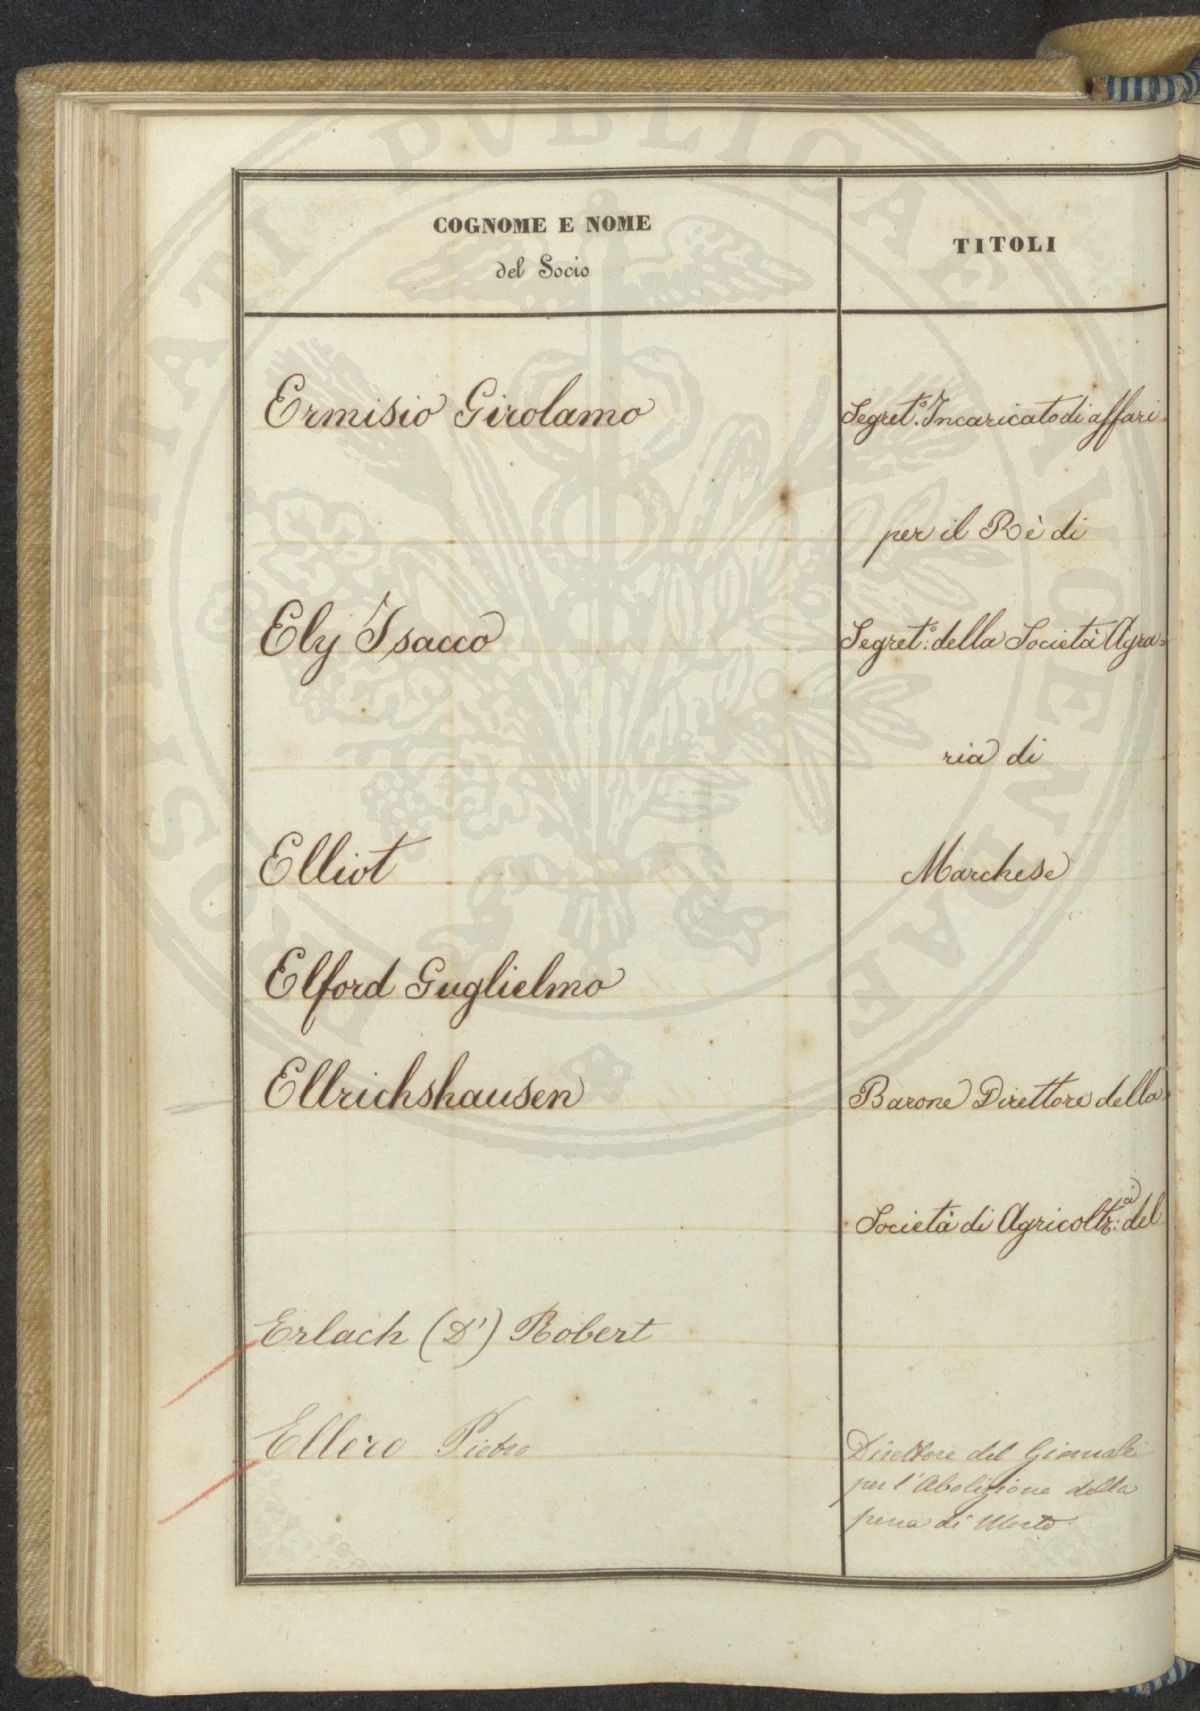 COGNOME E NOME
del Socio
TITOLI
Ermisio Girolamo
Segret.º Incaricato di affari
per il Rè di
Ely Isacco
Segret.º: della Società Agra=
ria di
Elliot
Marchese
Elford Guglielmo
Ellrichshausen
Barone Direttore della
Società di Agricoltr:a del
Erlach (D') Robert
Ellero Pietro
Direttore del Giornale
per l'Abolizione della
pena di Morte
PROSPERITATI PVBLICAE AVGENDAE